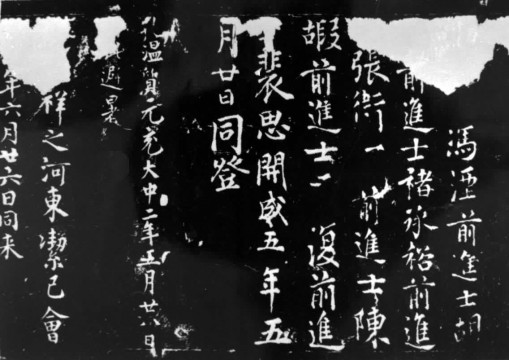 馮涯前進士胡
前進士褚承裕前進
張衢 前進士陳
嘏前進士 復前進
裴思開成五年五
月廿日同登
溫質元充大中二年正月廿八日
遐景
祥之河東潔己會
年六月廿六日同来